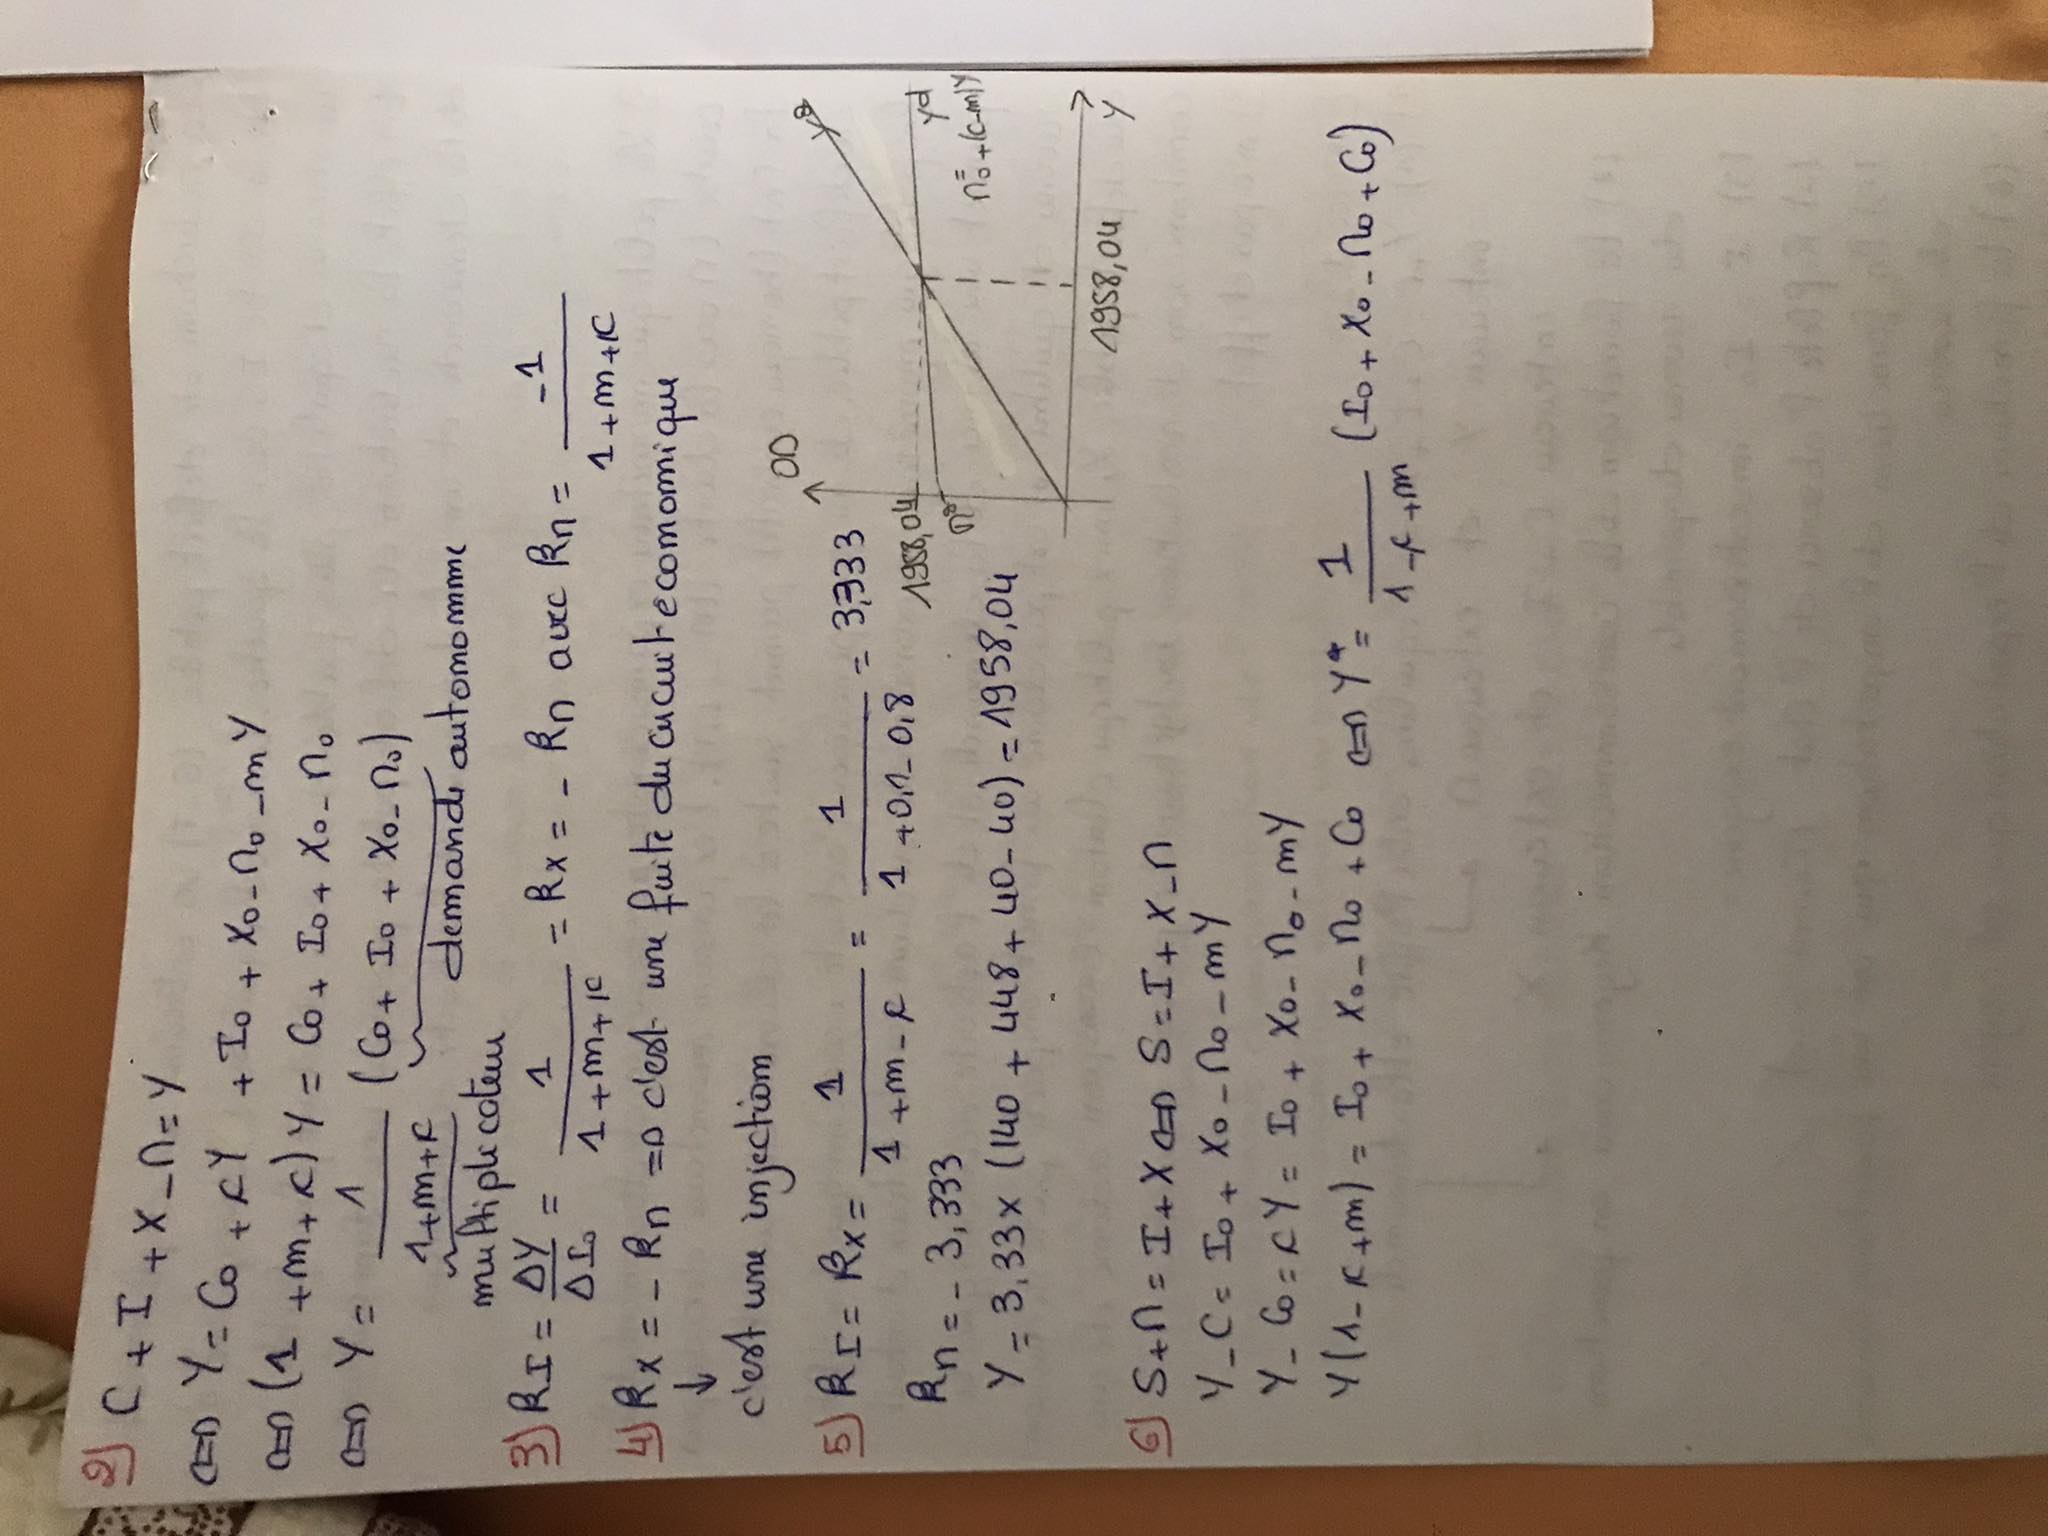 2) C + I + X - M = Y
⇔ Y = C0 + cY + I0 + X0 - M0 - mY
⇔ (1 + m + c) Y = C0 + I0 + X0 - M0
⇔ Y = 1 / (1+m+c) (C0 + I0 + X0 - M0)
multiplicateur demande autonomme
3) kI = ΔY / ΔI0 = 1 / (1+m+c) = kX = - kM avec kM = -1 / (1+m+c)
4) kX = - kM => c'est une fuite du circuit economique
↓
c'est une injection
5) kI = kX = 1 / (1+m-c) = 1 / (1+0,1-0,8) = 3,333
kM = - 3,333
Y = 3,33 x (140 + 448 + 40 - 40) = 1958,04
OD
1958,04
Yd
= + (c-m)Y
1958,04
Y
6) S+M = I+X ⇔ S = I + X - M
Y - C = I0 + X0 - M0 - mY
Y - C0 = cY = I0 + X0 - M0 - mY
Y(1-c+m) = I0 + X0 - M0 + C0 ⇔ Y* = 1 / (1-c+m) (I0 + X0 - M0 + C0)